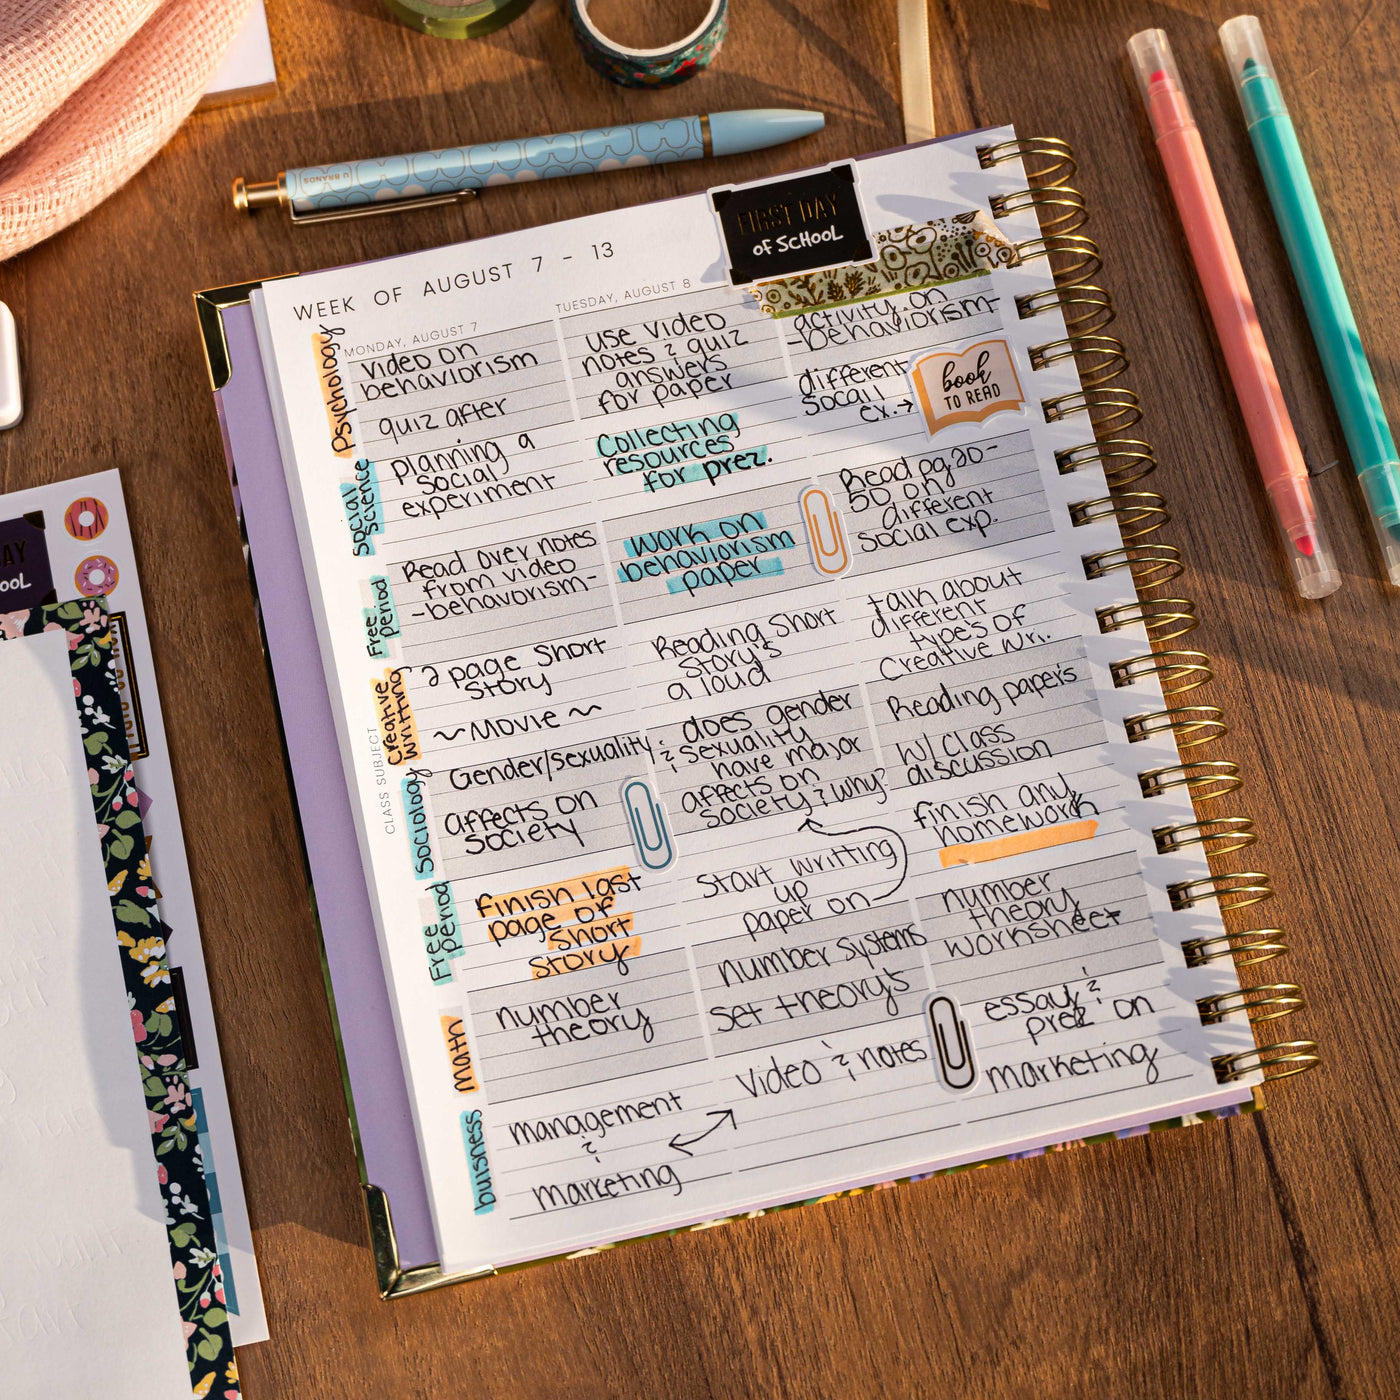 U BRANDS
FIRST DAY
OF SCHOOL
WEEK OF AUGUST 7 - 13
MONDAY, AUGUST 7
TUESDAY, AUGUST 8
CLASS SUBJECT
Psychology
video on
behaviorism
quiz after
use video
notes & quiz
answers
for paper
activity on
-behaviorism-
different
socail
ex.→
book
TO READ
Social
Science
planning a
social
experiment
Collecting
resources
for prez.
Read pg 20-
50 on
different
social exp.
Free
Period
Read over notes
from video
-behavorism-
work on
behaviorism
paper
talk about
different
types of
Creative wri.
Creative
Writing
2 page Short
story
~Movie~
Reading Short
story's
a loud
Reading papers
w/ class
discussion
Sociology
Gender/sexuality
affects on
society
does gender
& sexuality
have major
affects on
society & why?
finish any
homework
Free
period
finish last
page of
short
story
Start writting
up
paper on
number
theory
worksheet
Math
number
theory
number systems
set theory's
essay &
prez on
marketing
buisness
management
&
marketing
video & notes
AY
OOL